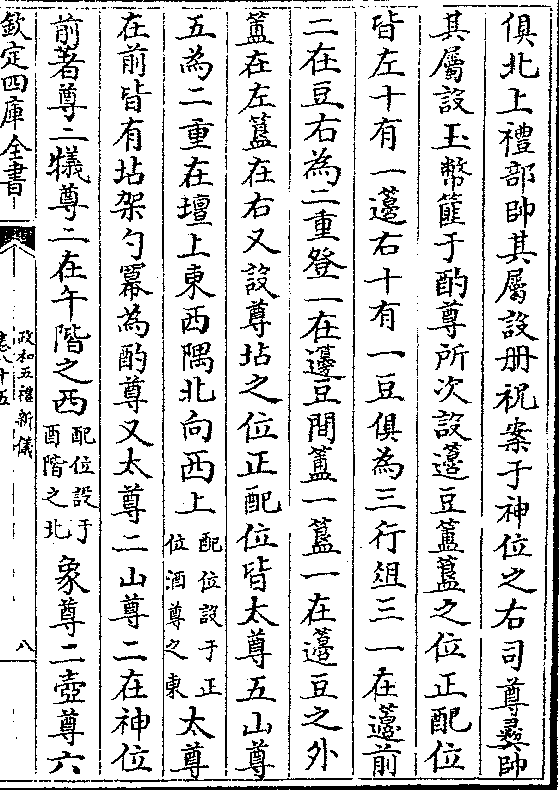 俱北上禮部帥其屬設册祝案于神位之右司尊彞帥
其屬設玉幣篚于酌尊所次設籩豆簠簋之位正配位
皆左十有一籩右十有一豆俱為三行俎三一在籩前
二在豆右為二重登一在籩豆間簠一簋一在籩豆之外
簠在左簋在右又設尊坫之位正配位皆太尊五山尊
五為二重在壇上東西隅北向西上配位設于正位酒尊之東太尊
在前皆有坫架勺冪為酌尊又太尊二山尊二在神位
前著尊二犧尊二在午階之西配位設于酉階之北象尊二壺尊六
欽定四庫全書
政和五禮新儀
卷八十五
八